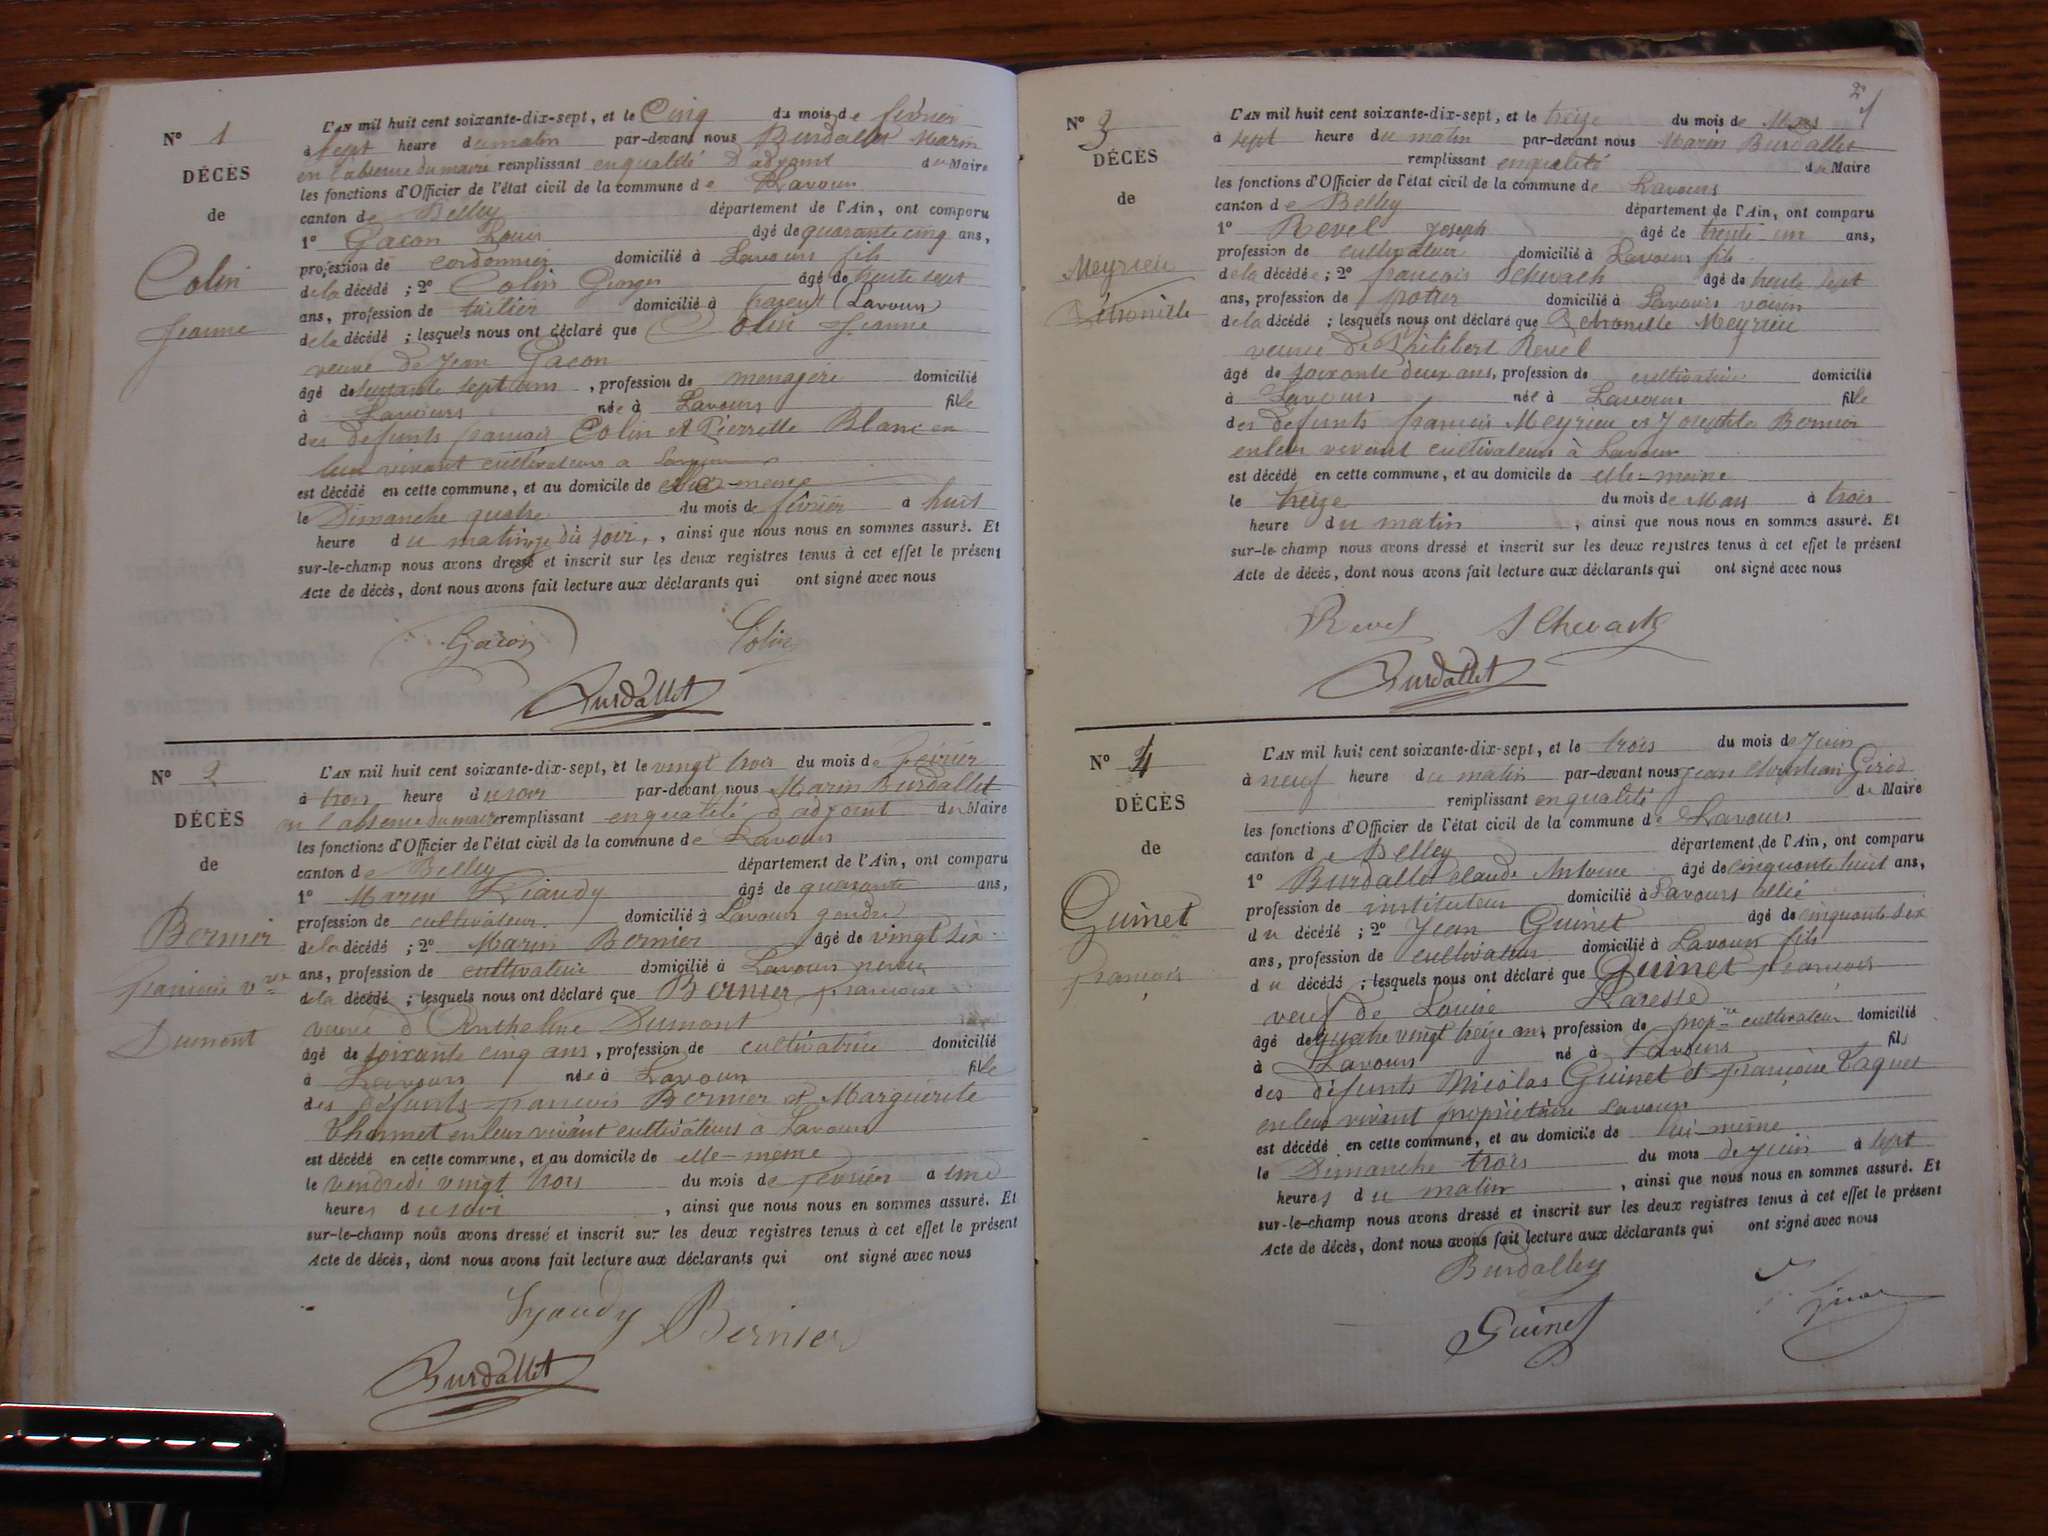 Nº 1
DÉCÈS
de
Colin
Jeanne
L'AN mil huit cent soixante-dix-sept, et le Cinq du mois de février
à sept heure du matin par-devant nous Burdallet Marin
en l'absence du maire remplissant en qualité d'adjoint du Maire
les fonctions d'Officier de l'état civil de la commune de Lavours
canton de Belley département de l'Ain, ont comparu
1º Gacon Louis âgé de quarante cinq ans,
profession de cordonnier domicilié à Lavours fils
de la décédé ; 2º Colin Georges âgé de trente sept
ans, profession de tuilier domicilié à parent (Lavours)
de la décédé ; lesquels nous ont déclaré que Colin Jeanne
veuve de Jean Gacon
âgé de sept ans, profession de menagere domicilié
à Lavours née à Lavours fille
des defunts francois Colin et Pierrette Blanc en
leur vivant cultivateurs a Lavours
est décédé en cette commune, et au domicile de elle-meme
le Dimanche quatre du mois de février à huit
heure du matin du soir, , ainsi que nous nous en sommes assuré. Et
sur-le-champ nous avons dressé et inscrit sur les deux registres tenus à cet effet le présent
Acte de décès, dont nous avons fait lecture aux déclarants qui ont signé avec nous
Gacon Colin
Burdallet
Nº 2
DÉCÈS
de
Bernier
francoise vve
Dumont
L'AN mil huit cent soixante-dix-sept, et le vingt trois du mois de fevrier
à trois heure du soir par-devant nous Marin Burdallet
en l'absence du maire remplissant en qualité d'adjoint du Maire
les fonctions d'Officier de l'état civil de la commune de Lavours
canton de Belley département de l'Ain, ont comparu
1º Marin Liaudy âgé de quarante ans,
profession de cultivateur domicilié à Lavours gendre
de la décédé ; 2º Marin Bernier âgé de vingt six
ans, profession de cultivateur domicilié à Lavours neveu
de la décédé ; lesquels nous ont déclaré que Bernier francoise
veuve d'Anthelme Dumont
âgé de soixante cinq ans, profession de cultivatrice domicilié
à Lavours née à Lavours fille
des defunts francois Bernier et Marguerite
Thomet en leur vivant cultivateurs a Lavours
est décédé en cette commune, et au domicile de elle-meme
le vendredi vingt trois du mois de fevrier à une
heures du soir , ainsi que nous nous en sommes assuré. Et
sur-le-champ nous avons dressé et inscrit sur les deux registres tenus à cet effet le présent
Acte de décès, dont nous avons fait lecture aux déclarants qui ont signé avec nous
Lyaudy Bernier
Burdallet
2
Nº 3
DÉCÈS
de
Meyrieu
Pétronille
L'AN mil huit cent soixante-dix-sept, et le treize du mois de Mars
à sept heure du matin par-devant nous Marin Burdallet
remplissant en qualité de Maire
les fonctions d'Officier de l'état civil de la commune de Lavours
canton de Belley département de l'Ain, ont comparu
1º Revel Joseph âgé de trente-un ans,
profession de cultivateur domicilié à Lavours fils
de la décédée ; 2º francois Schwach âgé de trente sept
ans, profession de potier domicilié à Lavours voisin
de la décédé ; lesquels nous ont déclaré que Petronille Meyrieu
veuve de Philibert Revel
âgé de soixante deux ans, profession de cultivatrice domicilié
à Lavours née à Lavours fille
des défunts francois Meyrieu et Bernier
en leur vivant cultivateurs à Lavours
est décédé en cette commune, et au domicile de elle-meme
le treize du mois de Mars à trois
heure du matin , ainsi que nous nous en sommes assuré. Et
sur-le-champ nous avons dressé et inscrit sur les deux registres tenus à cet effet le présent
Acte de décès, dont nous avons fait lecture aux déclarants qui ont signé avec nous
Revel Schwach
Burdallet
Nº 4
DÉCÈS
de
Guinet
francois
L'AN mil huit cent soixante-dix-sept, et le trois du mois de Juin
à neuf heure du matin par-devant nous Jean Christian Girod
remplissant en qualité de Maire
les fonctions d'Officier de l'état civil de la commune de Lavours
canton de Belley département de l'Ain, ont comparu
1º Burdallet Claude Antoine âgé de cinquante huit ans,
profession de instituteur domicilié à Lavours allié
du décédé ; 2º Jean Guinet âgé de cinquante six
ans, profession de cultivateur domicilié à Lavours fils
du décédé ; lesquels nous ont déclaré que Guinet francois
veuf de Louise Laresse
âgé de quatre vingt treize ans, profession de propre cultivateur domicilié
à Lavours né à Lavours fils
des défunts Nicolas Guinet et françoise Taquet
en leur vivant propriétaire Lavours
est décédé en cette commune, et au domicile de lui-même
le Dimanche trois du mois de Juin à sept
heures du matin , ainsi que nous nous en sommes assuré. Et
sur-le-champ nous avons dressé et inscrit sur les deux registres tenus à cet effet le présent
Acte de décès, dont nous avons fait lecture aux déclarants qui ont signé avec nous
Burdalley
Guinet Girod